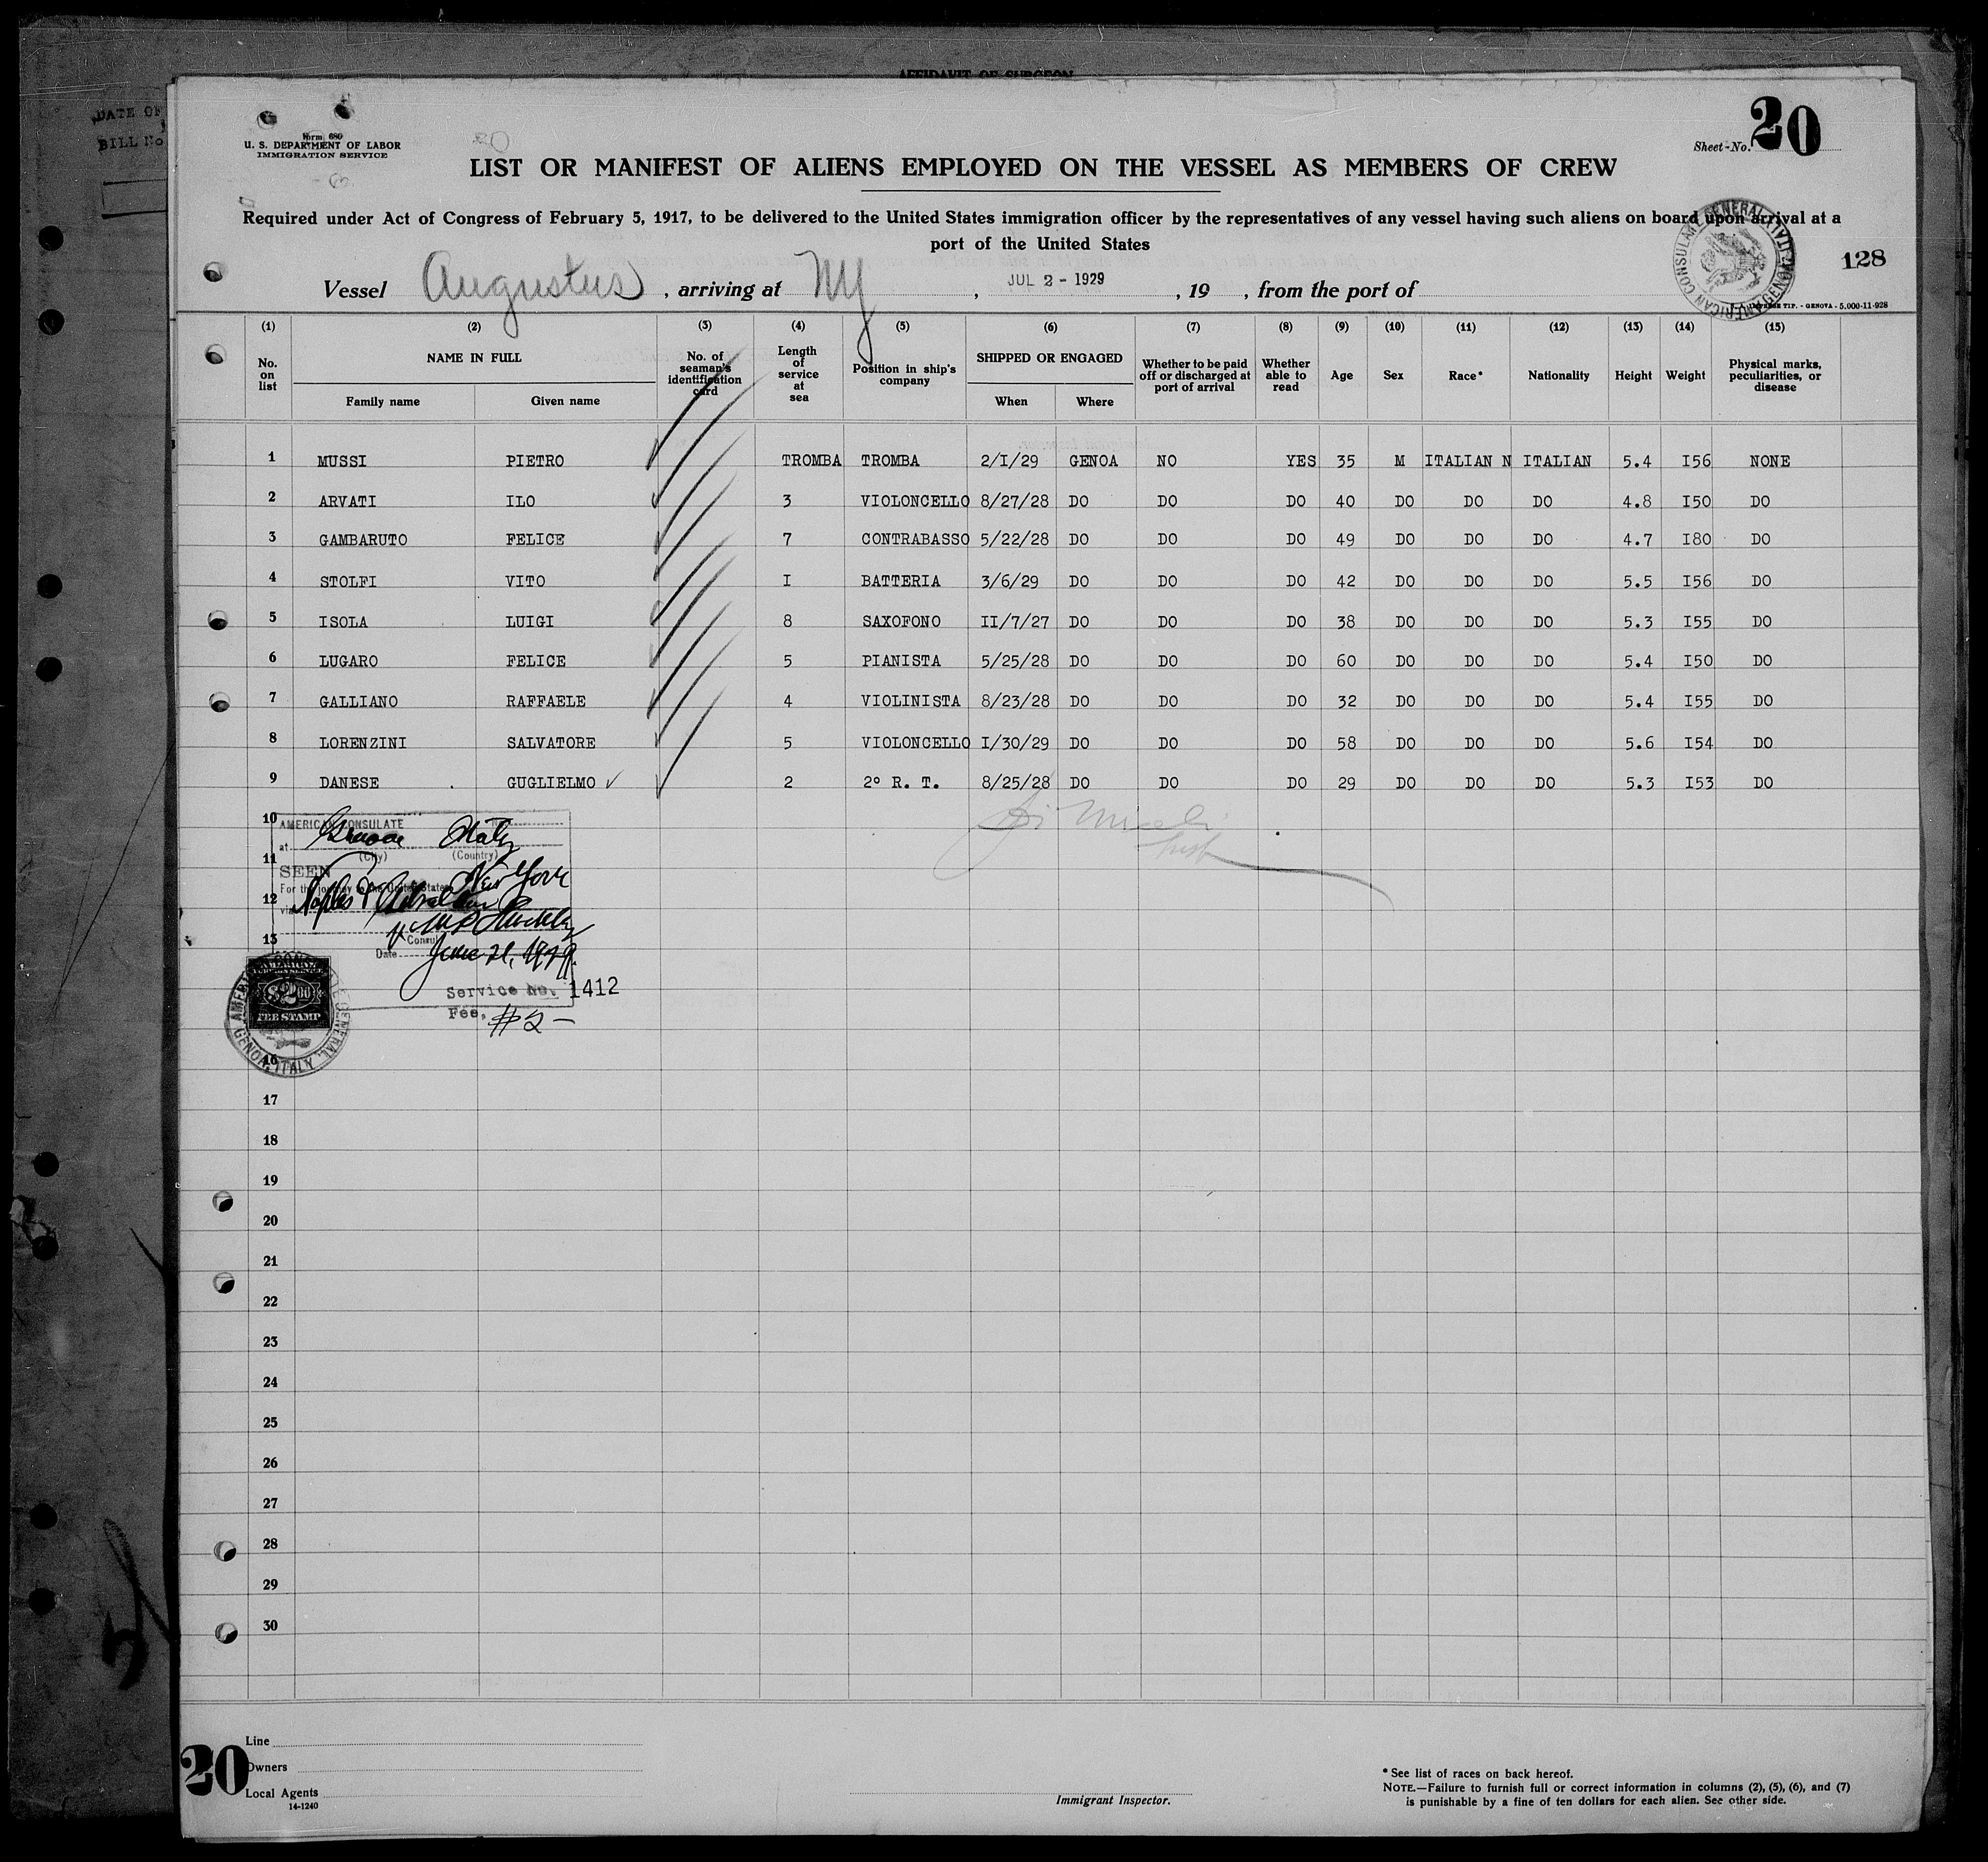 AFFIDAVIT OF SURGEON
DATE OF
BILL No
Form 680
U. S. DEPARTMENT OF LABOR
IMMIGRATION SERVICE
Sheet No. 20
LIST OR MANIFEST OF ALIENS EMPLOYED ON THE VESSEL AS MEMBERS OF CREW
Required under Act of Congress of February 5, 1917, to be delivered to the United States immigration officer by the representatives of any vessel having such aliens on board upon arrival at a
port of the United States
AMERICAN CONSULATE GENERAL GENOA, ITALY
128
Vessel Augustus, arriving at NY, JUL 2 - 1929, 19 , from the port of
TIP. - GENOVA - 5.000-11-928
(1) (2) (3) (4) (5) (6) (7) (8) (9) (10) (11) (12) (13) (14) (15)
No. on list NAME IN FULL Family name Given name No. of seaman's identification card Length of service at sea Position in ship's company SHIPPED OR ENGAGED When Where Whether to be paid off or discharged at port of arrival Whether able to read Age Sex Race* Nationality Height Weight Physical marks, peculiarities, or disease
1 MUSSI PIETRO TROMBA TROMBA 2/I/29 GENOA NO YES 35 M ITALIAN N ITALIAN 5.4 I56 NONE
2 ARVATI ILO 3 VIOLONCELLO 8/27/28 DO DO DO 40 DO DO DO 4.8 I50 DO
3 GAMBARUTO FELICE 7 CONTRABASSO 5/22/28 DO DO DO 49 DO DO DO 4.7 I80 DO
4 STOLFI VITO I BATTERIA 3/6/29 DO DO DO 42 DO DO DO 5.5 I56 DO
5 ISOLA LUIGI 8 SAXOFONO II/7/27 DO DO DO 38 DO DO DO 5.3 I55 DO
6 LUGARO FELICE 5 PIANISTA 5/25/28 DO DO DO 60 DO DO DO 5.4 I50 DO
7 GALLIANO RAFFAELE 4 VIOLINISTA 8/23/28 DO DO DO 32 DO DO DO 5.4 I55 DO
8 LORENZINI SALVATORE 5 VIOLONCELLO I/30/29 DO DO DO 58 DO DO DO 5.6 I54 DO
9 DANESE GUGLIELMO ✓ 2 2º R. T. 8/25/28 DO DO DO 29 DO DO DO 5.3 I53 DO
10
AMERICAN CONSULATE
at Genoa Italy
(City) (Country)
11
SEEN
For the journey to the United States New York
12
via Naples & Gibraltar
13
Consul
Date June 21, 1929.
AMERICAN FOREIGN SERVICE
$2.00
FEE STAMP
Service No. 1412
Fee, $2 —
AMERICAN CONSULATE GENERAL, GENOA, ITALY
16
17
18
19
20
21
22
23
24
25
26
27
28
29
30
20
Line
Owners
Local Agents
14-1240
Immigrant Inspector.
* See list of races on back hereof.
NOTE.—Failure to furnish full or correct information in columns (2), (5), (6), and (7)
is punishable by a fine of ten dollars for each alien. See other side.